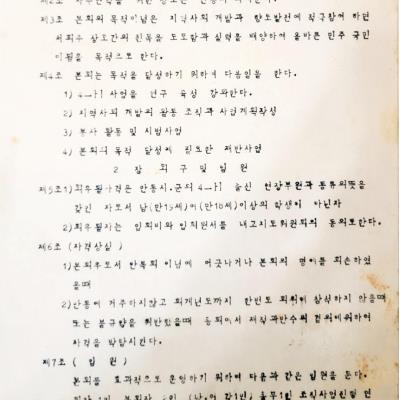 제3조 본회의 목적이념은 지역사회 개발과 향토발전에 적극참여 하면
서회우 상호간의 친목을 도모함과 실력을 배양하여 올바른 민주 국민
이됨을 목적으로 한다.
제4조 본회는 목적을 달성하기 위하여 다음일을 한다.
1) 4-H 사업을 연구 육성 강화한다.
2) 지역사회 개발의 활동 조직과 사업계획작성
3) 봉사 활동 및 시범사업
4) 본회의 목적 달성에 필요한 제반사업
2 장 회 구 및 임 원
제5조1)회우될자격은 안동시.군의 4-H 출신 현장부원과 동류의뜻을
갖인 자로서 남(만19세)여(만18세)이상의 학생이 아닌자
2)회우될자는 입회비와 입회원서를 내고지도위원회의 동의로한다.
제6조 (자격상실)
1)본회우로서 안록회 이념에 어긋나거나 본회의 명예를 회손하였
을때
2)안동에 거주하지않고 회계년도까지 한번도 회취에 참석하지 않을때
또는 불규합을 위반했을때 등회에서 재적과반수의 결의에의하여
자격을 박탈시킨다.
제7조 ( 임 원 )
본회를 효과적으로 운영하기 위하여 다음과 같은 임원을 둔다.